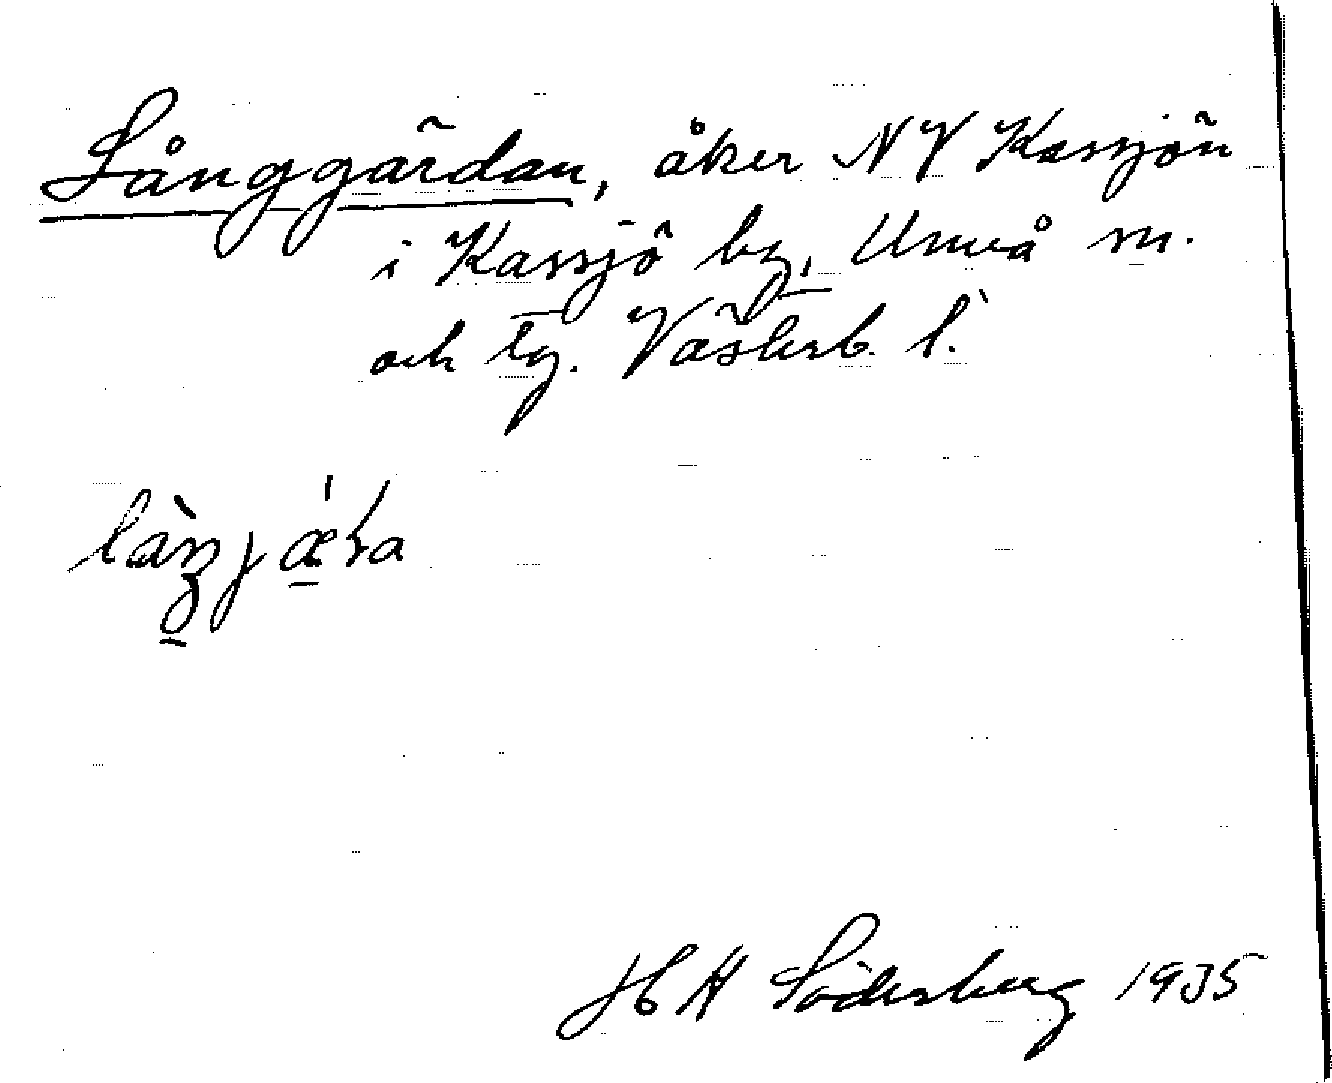 Långgärdan, åker NV Kassjön
i Kassjö by, Umeå sn.
och tg. Västerb. l.
H A Söderberg 1935